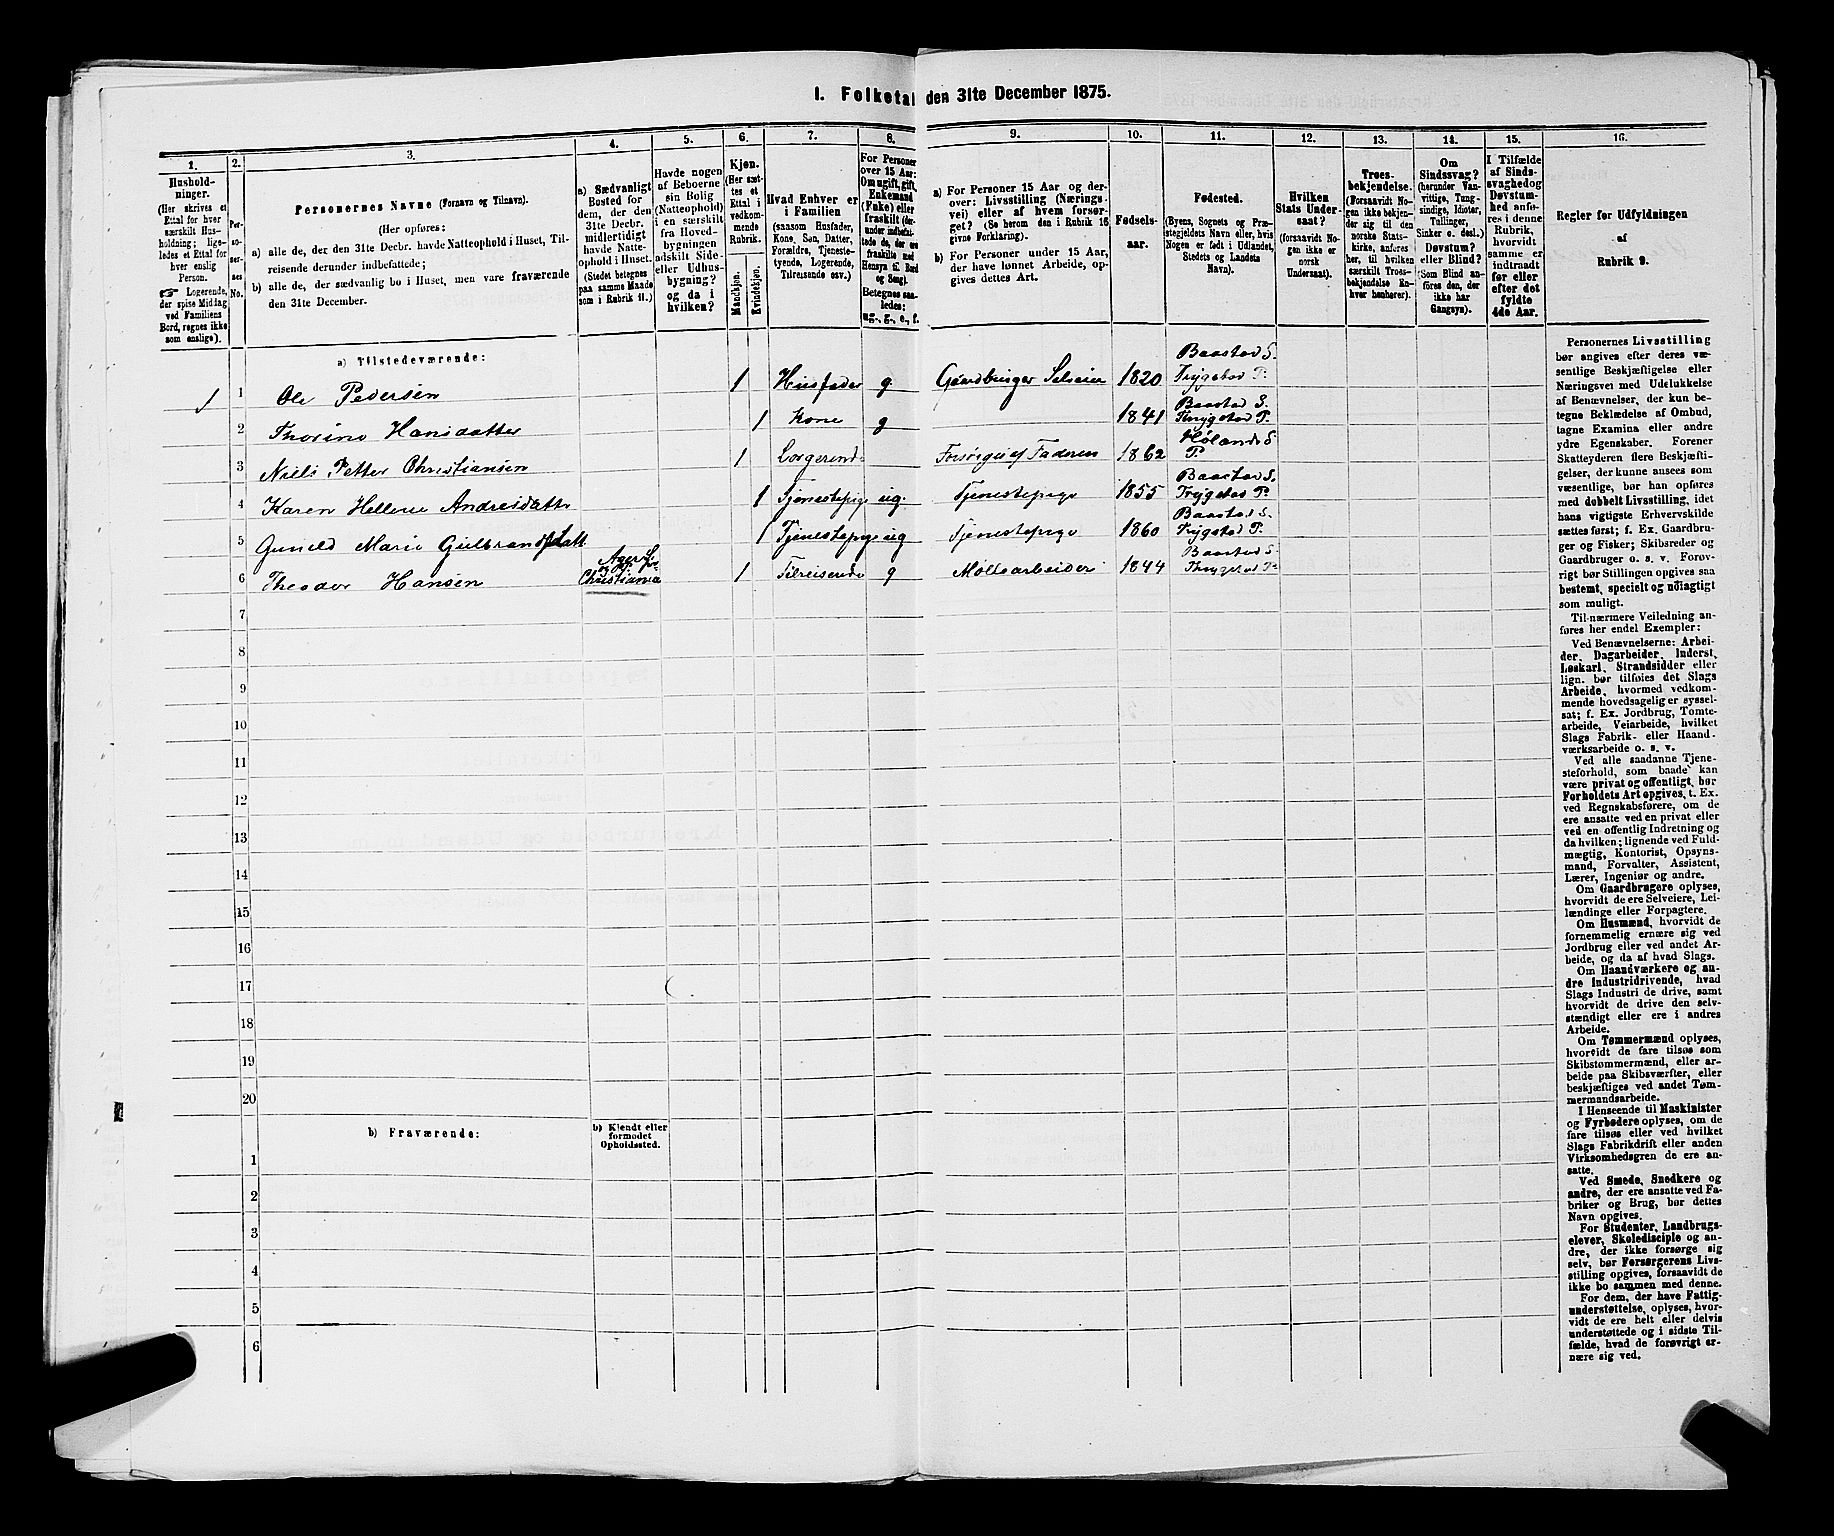 1. Folketal den 31te December 1875.
1. 2. 3. 4. 5. 6. 7. 8. 9. 10. 11. 12. 13. 14. 15. 16.
Husholdninger.
(Her skrives et
Ettal for hver
særskilt Husholdning;
ligeledes et Ettal for
hver enslig
Person.
☞ Logerende,
der spise Middag
ved Familiens
Bord, regnes ikke
som enslige).
Personernes No.
Personernes Navne (Fornavn og Tilnavn).
(Her opføres:
a) alle de, der den 31te Decbr. havde Natteophold i Huset, Tilreisende
derunder indbefattede;
b) alle de, der sædvanlig bo i Huset, men vare fraværende
den 31te December.
a) Sædvanligt
Bosted for
dem, der den
31te Decbr.
midlertidigt
havde Natteophold
i Huset.
(Stedet betegnes
paa samme Maade
som i Rubrik 11.)
Havde nogen
af Beboerne
sin Bolig
(Natteophold)
i en særskilt
fra Hovedbygningen
adskilt Side-
eller Udhusbygning?
og da i
hvilken?
Kjøn.
(Her sættes
et
Ettal i
vedkommende
Rubrik.
Mandkjøn.
Kvindekjøn.
Hvad Enhver er
i Familien
(saasom Husfader,
Kone, Søn, Datter,
Forældre, Tjenestetyende,
Logerende,
Tilreisende osv.)
For Personer
over 15 Aar:
Om ugift, gift,
Enkemand
(Enke) eller
fraskilt
Betegnes saaledes:
ug., g., e., f.
a) For Personer 15 Aar og derover:
Livsstilling (Næringsvei)
eller af hvem forsørget
(Se herom den i Rubrik 16
givne Forklaring).
b) For Personer under 15 Aar,
der have lønnet Arbeide, opgives
dettes Art.
Fødselsaar.
Fødested.
(Byens, Sognets og Præstegjeldets
Navn eller, hvis
Nogen er født i Udlandet,
Stedets og Landets
Navn).
Hvilken
Stats Undersaat?
(forsaavidt Nogen
ikke er
norsk
Undersaat).
Troesbekjendelse.
(Forsaavidt Nogen
ikke bekjender
sig til den
norske Statskirke,
anføres
her, til hvilken
særskilt Troesbekjendelse
Enhver
henhører).
Om
Sindssvag?
(herunder Vanvittige,
Tungsindige,
Idioter,
Tullinger,
Sinker o. desl.)
Døvstum?
eller Blind?
(Som Blind anføres
den, der
ikke har
Gangsyn).
I Tilfælde
af Sindssvaghed
og
Døvstumhed
anføres
i denne
Rubrik,
hvorvidt
samme er
indtraadt
før eller
efter det
fyldte
4de Aar.
Regler for Udfyldningen
af
Rubrik 9.
a) Tilstedeværende:
1 1 Ole Pedersen 1 Husfader g. Gaardbruger Selveier 1820 Baastad S. Trygstad P.
2 Thorine Hansdatter 1 Kone g Baastad S. 1841 Thrygstad P.
3 Niels Petter Christiansen 1 Logerende Forsørges af Faderen 1862 Hølands S. P.
4 Karen Hellene Andreasdatter 1 Tjenestepige ug. Tjenestepige 1855 Baastad S. Trygstad P.
5 Gunild Marie Gulbrandsdatt 1 Tjenestepige ug Tjenestepige 1860 Baastad S. Trygstad P.
6 Theodor Hansen Ager S. Christiania 1 Tilreisende g Molloarbeider 1844 Baastad S. Thrygstad P.
7
8
9
10
11
12
13
14
15
16
17
18
19
20
b) Fraværende:
b) Kjendt eller
formodet
Opholdssted.
1
2
3
4
5
6
Personernes Livsstilling
bør angives efter deres væsentlige
Beskjæftigelse eller
Næringsvei med Udelukkelse
af Benævnelser, der kun betegne
Beklædelse af Ombud,
tagne Examina eller andre
ydre Egenskaber. Forener
Skatteyderen flere Beskjæftigelser,
der kunne ansees som
væsentlige, bør han opføres
med dobbelt Livsstilling, idet
hans vigtigste Erhvervskilde
sættes først; f. Ex. Gaardbruger
og Fisker; Skibsreder og
Gaardbruger o. s. v. Forøvrigt
bør Stillingen opgives saa
bestemt, specielt og nøiagtigt
som muligt.
Til nærmere Veiledning anføres
her endel Exempler:
Ved Benævnelserne: Arbeider,
Dagarbeider, Inderst,
Løskarl, Strandsidder eller
lign. bør tilføies det Slags
Arbeide, hvormed vedkommende
hovedsagelig er sysselsat;
f. Ex. Jordbrug, Tomtearbeide,
Veiarbeide, hvilket
Slags Fabrik- eller Haandværksarbeide
o. s. v.
Ved alle saadanne Tjenesteforhold,
som baade kan
være privat og offentligt, bør
Forholdets Art opgives, t. Ex.
ved Regnskabsførere, om de
ere ansatte ved en privat eller
ved en offentlig Indretning og
da hvilken; lignende ved Fuldmægtig,
Kontorist, Opsynsmand,
Forvalter, Assistent,
Lærer, Ingeniør og andre.
Om Gaardbrugere oplyses,
hvorvidt de ere Selveiere, Leilændinge
eller Forpagtere.
Om Husmænd, hvorvidt de
fornemmelig ernære sig ved
Jordbrug eller ved andet Arbeide,
og da af hvad Slags.
Om Haandværkere og andre
Industridrivende, hvad
Slags Industri de drive, samt
hvorvidt de drive den selvstændigt
eller ere i andres
Arbeide.
Om Tømmermænd oplyses,
hvorvidt de fare tilsøs som
Skibstømmermænd, eller arbeide
paa Skibsværfter, eller
beskjæftiges ved andet Tømmermandsarbeide.
I Henseende til Maskinister
og Fyrbødere oplyses, om de
fare tilsøs eller ved hvilket
Slags Fabrikdrift eller anden
Virksomhedsgren de ere ansatte.
Ved Smede, Snedkere og
andre, der ere ansatte ved Fabriker
og Brug, bør dettes
Navn opgives.
For Studenter, Landbrugselever,
Skoledisciple og andre,
der ikke forsørge sig
selv, bør Forsørgerens Livsstilling
opgives, forsaavidt de
ikke bo sammen med denne.
For dem, der have Fattigunderstøttelse,
oplyses, hvorvidt
de ere helt eller delvis
understøttede og i sidste Tilfælde,
hvad de forøvrigt ernære
sig ved.